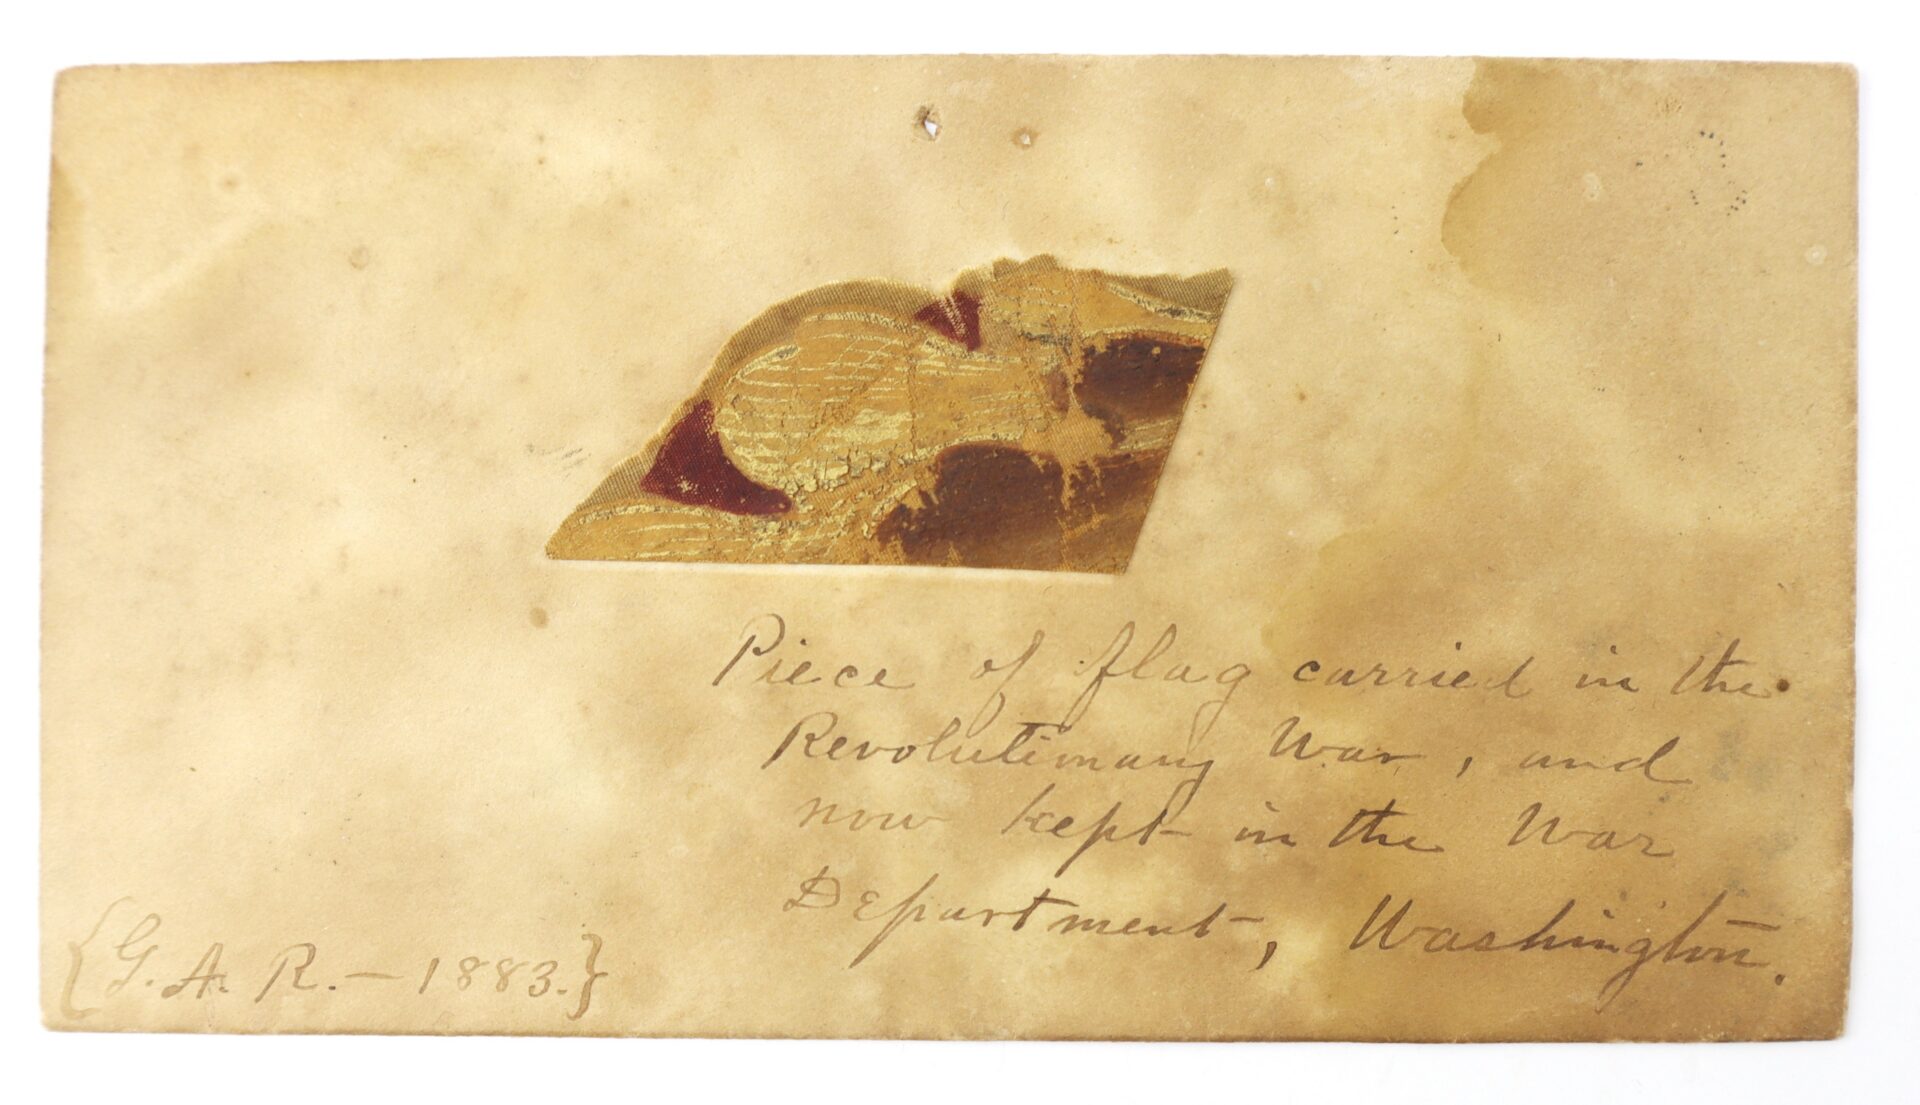 Piece of flag carried in the
Revolutionary War, and
now kept in the War
Department, Washington.
{G. A. R. — 1883.}